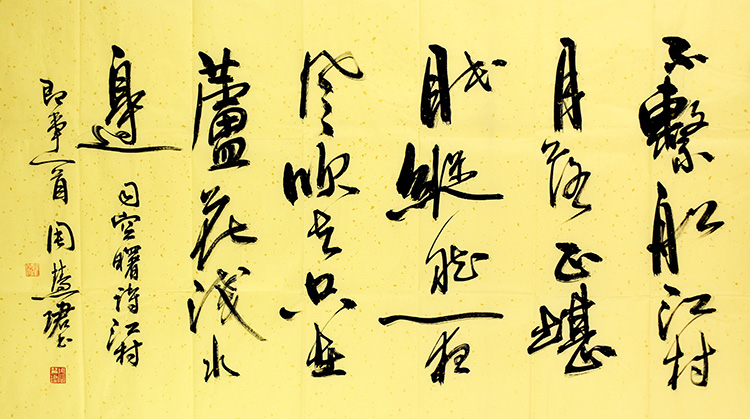 不繫船江村
月落正堪
眠縱然一夜
風吹去只在
蘆花淺水
邊
司空曙詩江村
即事一首 周慧珺书